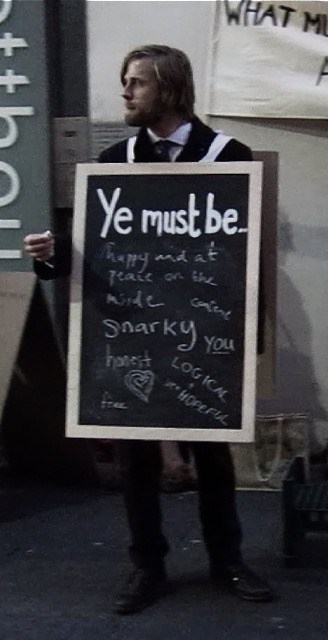 WHAT MU
Ye must be..
happy and at
peace on the
inside
snarky
YOU
honest
LOGICAL
HOPEFUL
free